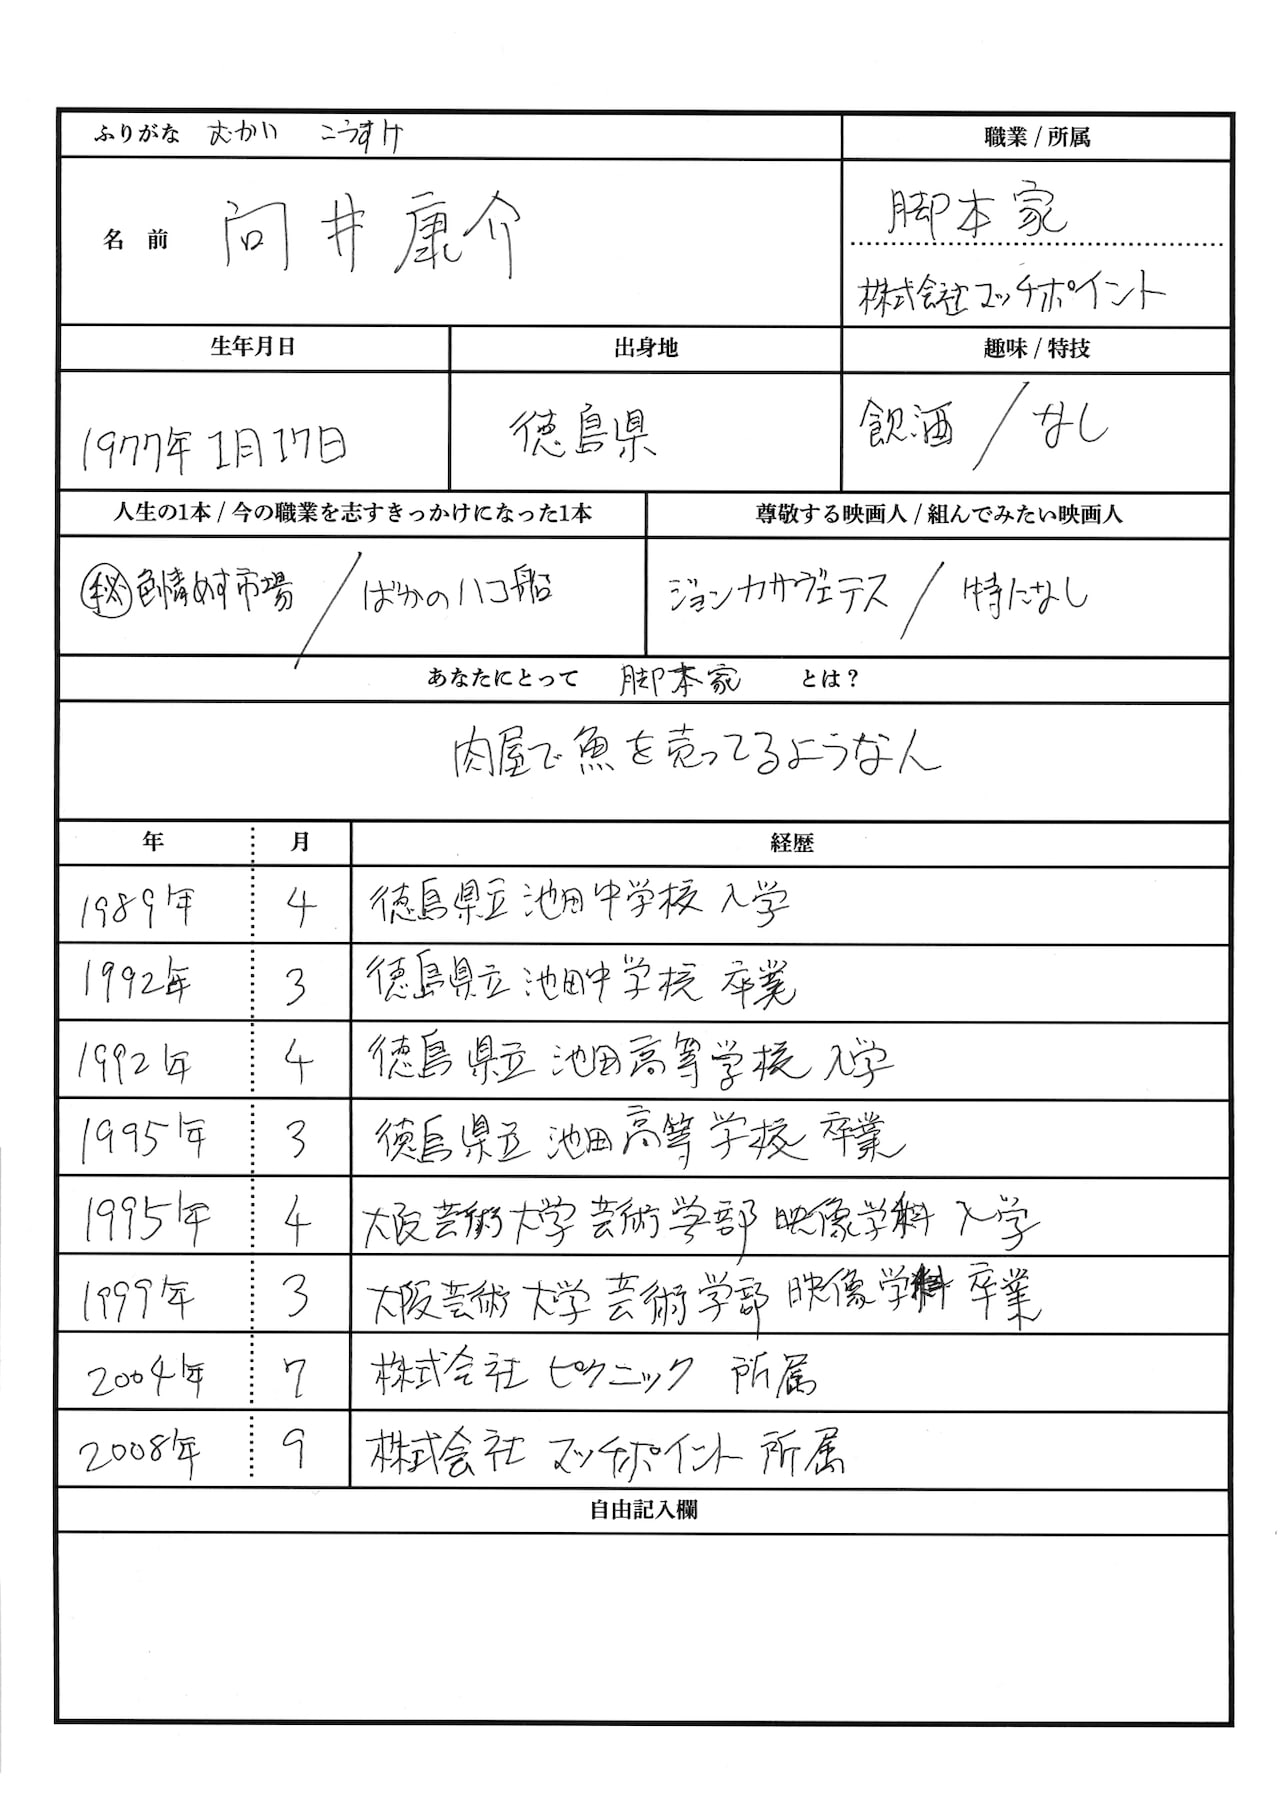 ふりがな むかい こうすけ
職業 / 所属
名 前 向井康介
脚本家
株式会社マッチポイント
生年月日 出身地 趣味 / 特技
1977年1月17日 徳島県 飲酒 / なし
人生の1本 / 今の職業を志すきっかけになった1本 尊敬する映画人 / 組んでみたい映画人
㊙色情めす市場 / ばかのハコ船 ジョンカサヴェテス / 特になし
あなたにとって 脚本家 とは？
肉屋で魚を売ってるようなん
年 月 経歴
1989年 4 徳島県立池田中学校 入学
1992年 3 徳島県立池田中学校 卒業
1992年 4 徳島県立池田高等学校 入学
1995年 3 徳島県立池田高等学校 卒業
1995年 4 大阪芸術大学芸術学部映像学科 入学
1999年 3 大阪芸術大学芸術学部映像学科 卒業
2004年 7 株式会社ピクニック 所属
2008年 9 株式会社マッチポイント 所属
自由記入欄